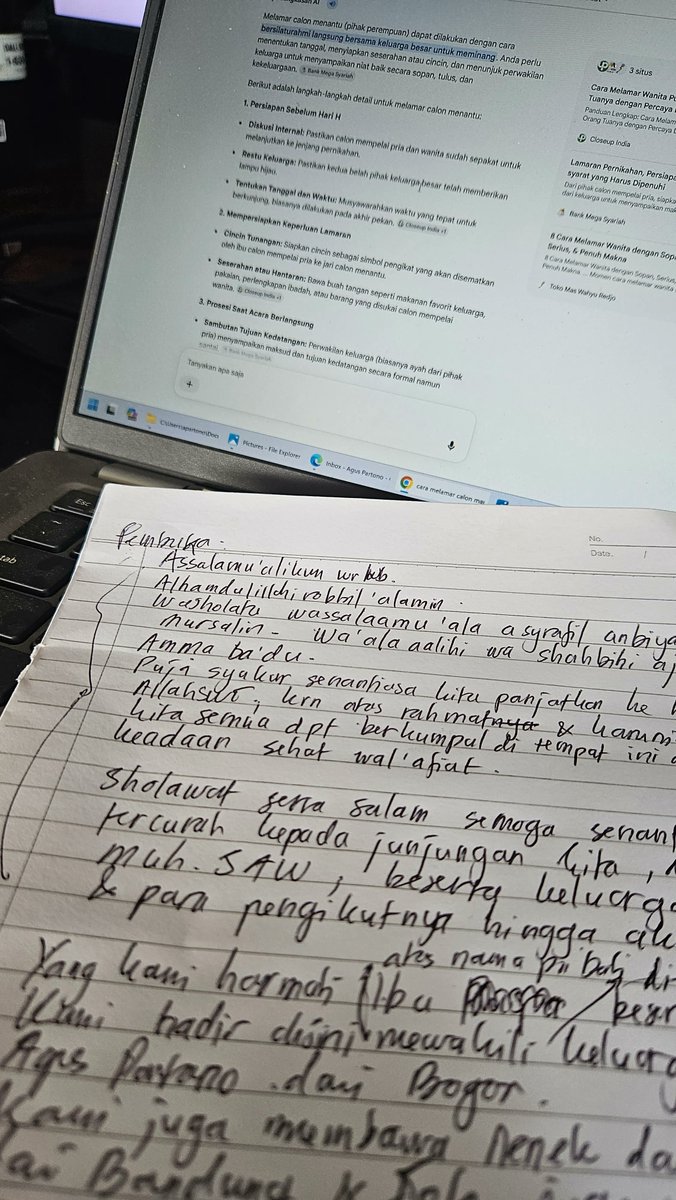 Melamar calon menantu (pihak perempuan) dapat dilakukan dengan cara
bersilaturahmi langsung bersama keluarga besar untuk meminang. Anda perlu
menentukan tanggal, menyiapkan seserahan atau cincin, dan menunjuk perwakilan
keluarga untuk menyampaikan niat baik secara sopan, tulus, dan
kekeluargaan. Bank Mega Syariah
Berikut adalah langkah-langkah detail untuk melamar calon menantu:
1. Persiapan Sebelum Hari H
• Diskusi Internal: Pastikan calon mempelai pria dan wanita sudah sepakat untuk
melanjutkan ke jenjang pernikahan.
• Restu Keluarga: Pastikan kedua belah pihak keluarga besar telah memberikan
lampu hijau.
• Tentukan Tanggal dan Waktu: Musyawarahkan waktu yang tepat untuk
berkunjung, biasanya dilakukan pada akhir pekan. Closeup India +1
2. Mempersiapkan Keperluan Lamaran
• Cincin Tunangan: Siapkan cincin sebagai simbol pengikat yang akan disematkan
oleh ibu calon mempelai pria ke jari calon menantu.
• Seserahan atau Hantaran: Bawa buah tangan seperti makanan favorit keluarga,
pakaian, perlengkapan ibadah, atau barang yang disukai calon mempelai
wanita. Closeup India +1
3. Prosesi Saat Acara Berlangsung
• Sambutan Tujuan Kedatangan: Perwakilan keluarga (biasanya ayah dari pihak
pria) menyampaikan maksud dan tujuan kedatangan secara formal namun
santai. Bank Mega Syariah
Tanyakan apa saja
+
3 situs
Cara Melamar Wanita
Tuanya dengan Percaya
Panduan Lengkap: Cara
Orang Tuanya dengan Percaya
Closeup India
Lamaran Pernikahan,
syarat yang Harus Dipenuhi
Dari pihak calon mempelai pria,
dari keluarga untuk menyampaikan
Bank Mega Syariah
8 Cara Melamar Wanita dengan
Serius, & Penuh Makna
8 Cara Melamar Wanita dengan Sopan, Serius,
Penuh Makna ... Momen cara melamar wanita
Toko Mas Wahyu Redjo
Pictures - File Explorer
Inbox - Agus Partono -
cara melamar calon
Esc
tab
No.
Date.
Pembuka.
Assalamu'alikum wr wb.
Alhamdulillahi robbil 'alamin.
Washolatu wassalaamu 'ala asyrafil anbiya
mursalin - wa'ala aalihi wa shahbihi
Amma ba'du.
Puji syukur senantiasa kita panjatkan ke
Allah SWT, krn atas rahmatnya &
kita semua dpt berkumpul di tempat ini
keadaan sehat wal'afiat.
Sholawat serta salam semoga
tercurah kepada junjungan kita,
Muh. SAW, beserta
& para pengikutnya hingga
atas nama
Yang kami hormati Ibu
Kami hadir disini mewakili
Agus Partono dari Bogor.
Kami juga membawa Nenek
dari Bandung &